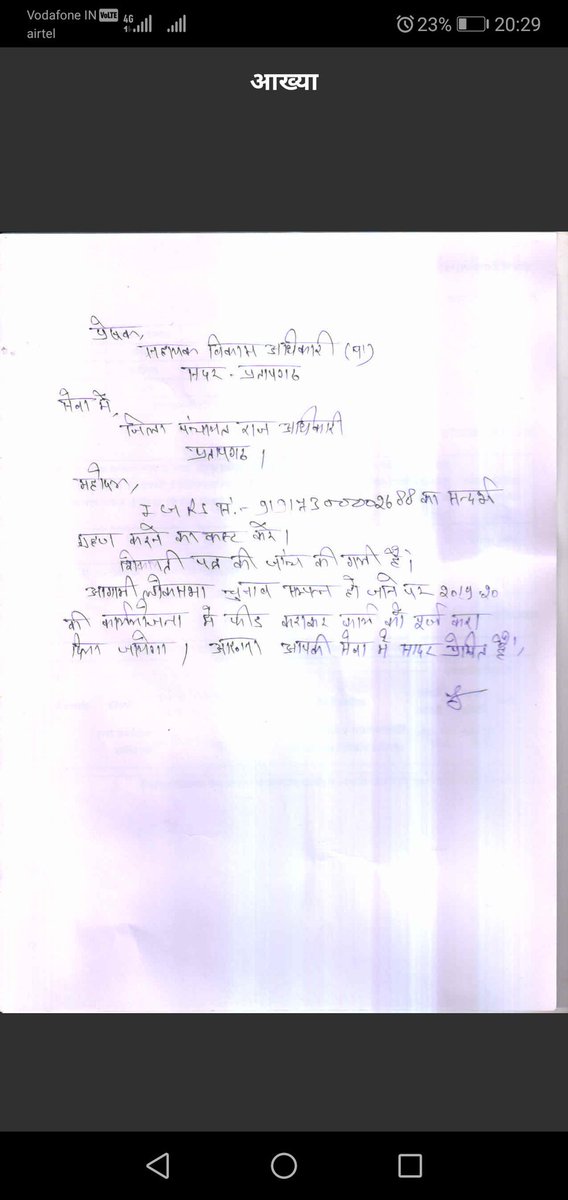 Vodafone IN VoLTE 4G 23% 20:29
airtel
आख्या
प्रेषक,
सहायक विकास अधिकारी (पं)
सदर - प्रतापगढ
सेवा में,
जिला पंचायत राज अधिकारी
प्रतापगढ।
महोदय,
I G R S सं:- का सन्दर्भ
ग्रहण करने का कष्ट करें।
शिकायती पत्र की जांच की गयी है।
आगामी लोकसभा चुनाव सम्पन्न हो जाने पर 2019-20
की कार्ययोजना मे फीड कराकर कार्य को पूर्ण करा
दिया जायेगा। आख्या आपकी सेवा मे सादर प्रेषित है।